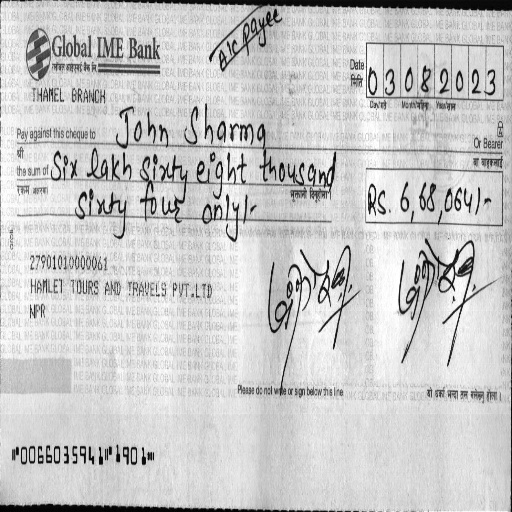 A/C payee
Global IME Bank
ग्लोबल आइएमई बैंक लि.
THAMEL BRANCH
Date
मिति
03082023
Day/गते Month/महिना Year/साल
Pay against this cheque to John Sharma Or Bearer
श्री वा वाहकलाई
the sum of Six lakh sixty eight thousand
sixty four only/-
Rs. 6,68,064/-
27901010000061
HAMLET TOURS AND TRAVELS PVT.LTD
NPR
Please do not write or sign below this line
⑈006603594⑈ ⑈190⑈